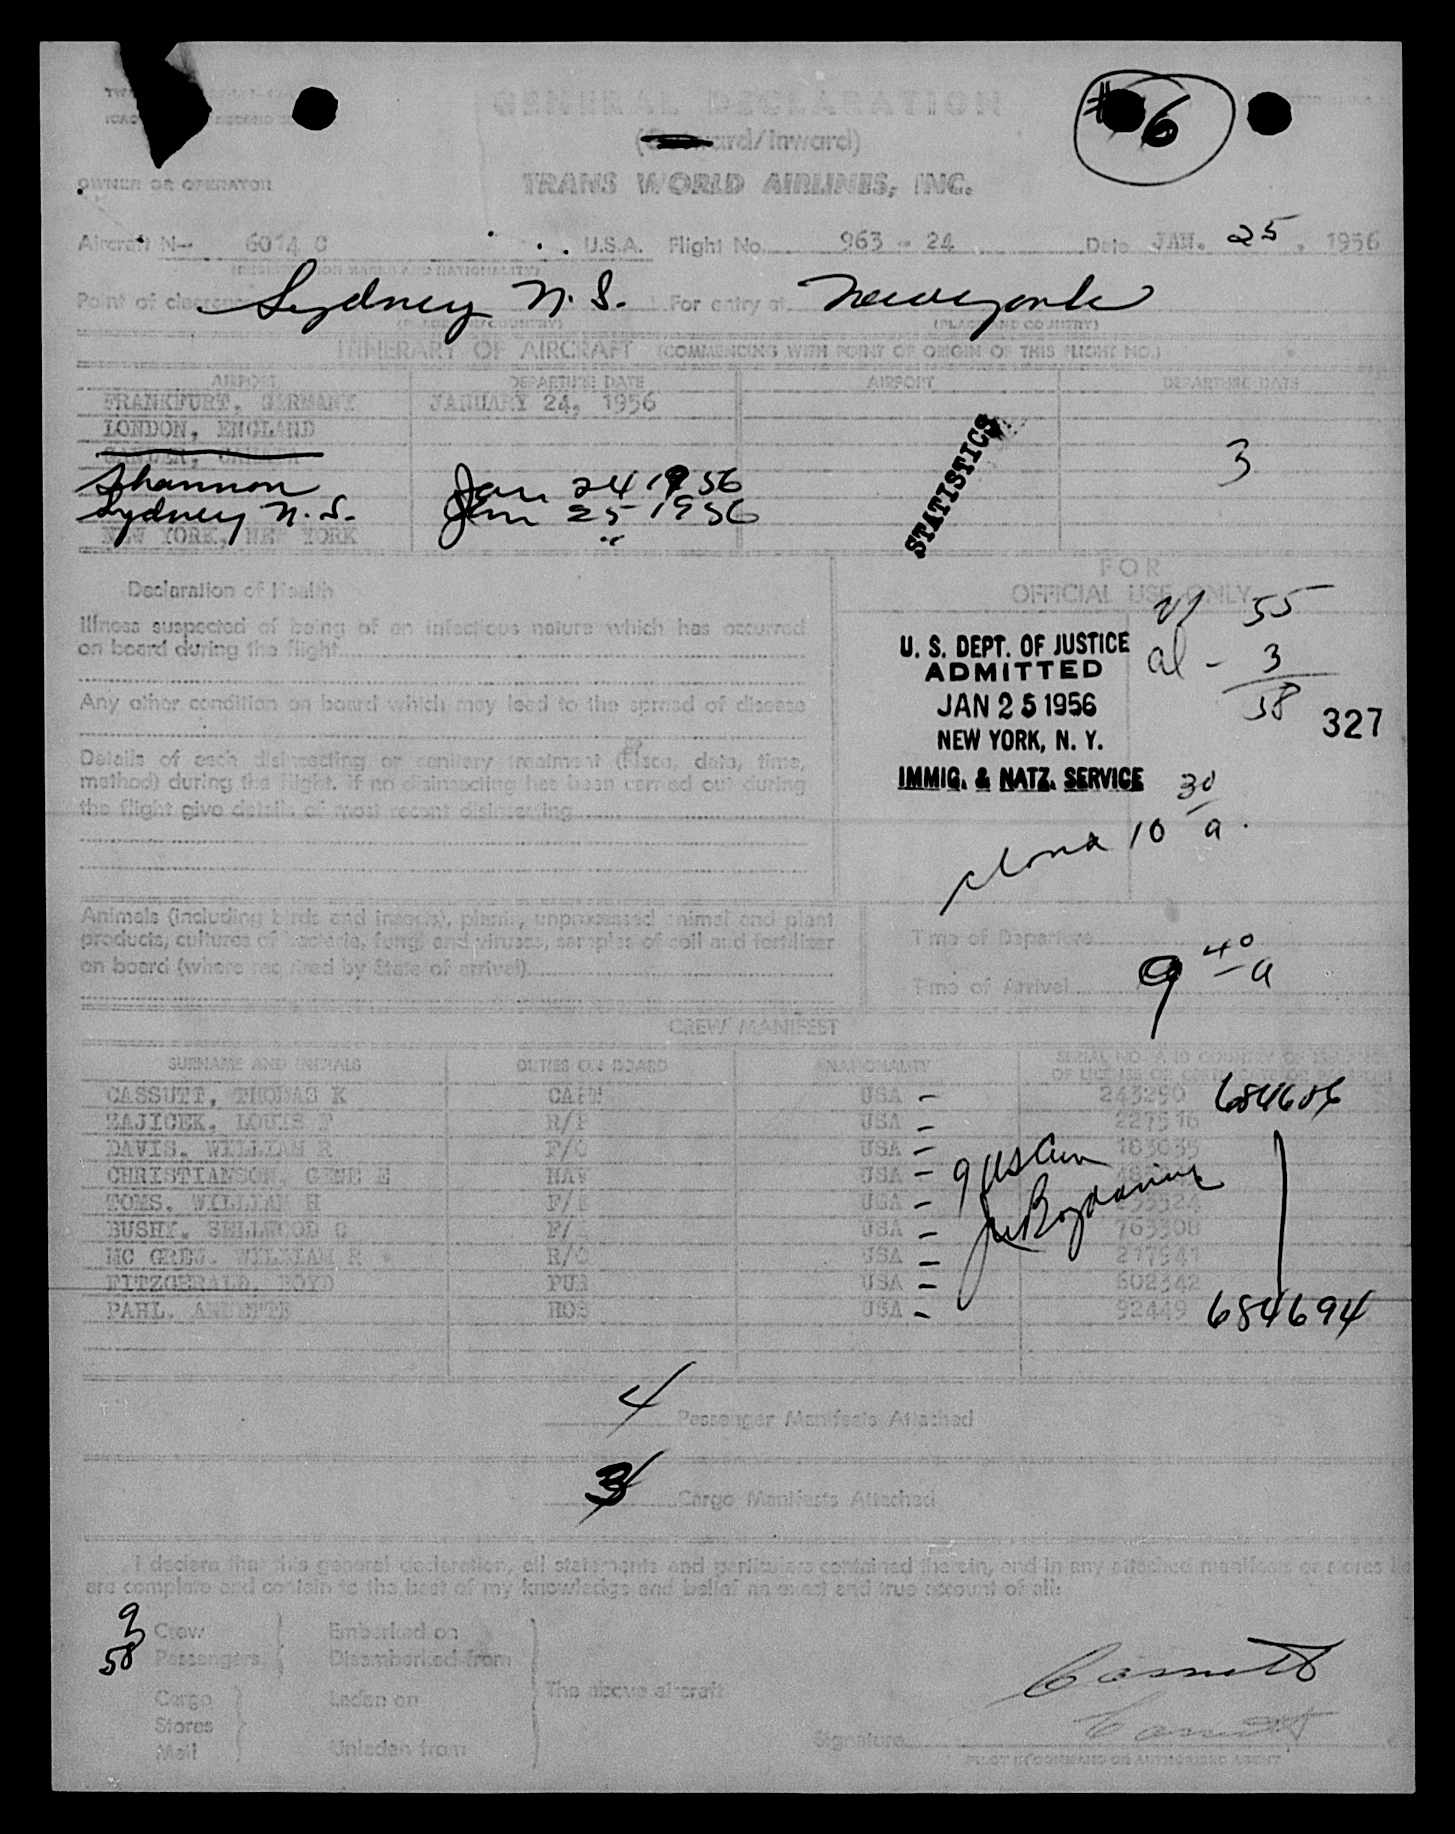 GENERAL DECLARATION
(Outward/Inward)
#6
TRANS WORLD AIRLINES, INC.
OWNER OR OPERATOR
Aircraft No. 6014 C U.S.A. Flight No. 963 - 24 Date JAN. 25, 1956
(REGISTRATION MARKS AND NATIONALITY)
Point of clearance Sydney N.S. For entry at Newyork
(PLACE AND COUNTRY) (PLACE AND COUNTRY)
ITINERARY OF AIRCRAFT (COMMENCING WITH POINT OF ORIGIN OF THIS FLIGHT NO.)
AIRPORT DEPARTURE DATE AIRPORT DEPARTURE DATE
FRANKFURT, GERMANY JANUARY 24, 1956
LONDON, ENGLAND
GANDER, CANADA
STATISTICS
3
Shannon Jan 24 1956
Sydney N.S. Jan 25 1956
NEW YORK, NEW YORK
Declaration of Health
FOR
OFFICIAL USE ONLY
Illness suspected of being of an infectious nature which has occurred
on board during the flight
Any other condition on board which may lead to the spread of disease
Details of each disinsecting or sanitary treatment (Place, date, time,
method) during the flight. If no disinsecting has been carried out during
the flight give details of most recent disinsecting
55
al - 3
58
327
U. S. DEPT. OF JUSTICE
ADMITTED
JAN 25 1956
NEW YORK, N. Y.
IMMIG. & NATZ. SERVICE
10 30 a.
Animals (including birds and insects), plants, unprocessed animal and plant
products, cultures of bacteria, fungi and viruses, samples of soil and fertilizer
on board (where required by State of arrival)
Time of Departure
Time of Arrival 9 40 a
CREW MANIFEST
SURNAME AND INITIALS DUTIES ON BOARD NATIONALITY
CASSUTT, THOMAS K CAPT USA - 243290 684686
ZAJICEK, LOUIS F USA - 227516
DAVIS, WILLIAM R F/O USA - 163035
CHRISTIANSON, GENE E NAV USA -
TOMS, WILLIAM H F/E USA -
BUSHY, SELLWOOD G USA - 763308
MC GREW, WILLIAM R R/O USA - 217541
FITZGERALD, BOYD PUR USA - 602342
PAHL, ANNETTE HOS USA - 92449 684694
9 US Cem
4 Passenger Manifests Attached
3 Cargo Manifests Attached
I declare that this general declaration, all statements and particulars contained therein, and in any attached manifests or stores
are complete and contain to the best of my knowledge and belief an exact and true account of all:
9 Crew Embarked on
58 Passengers Disembarked from
The above aircraft
Cargo Laden on
Stores
Mail Unladen from
Cassutt
Cassutt
Signature
PILOT IN COMMAND OR AUTHORIZED AGENT